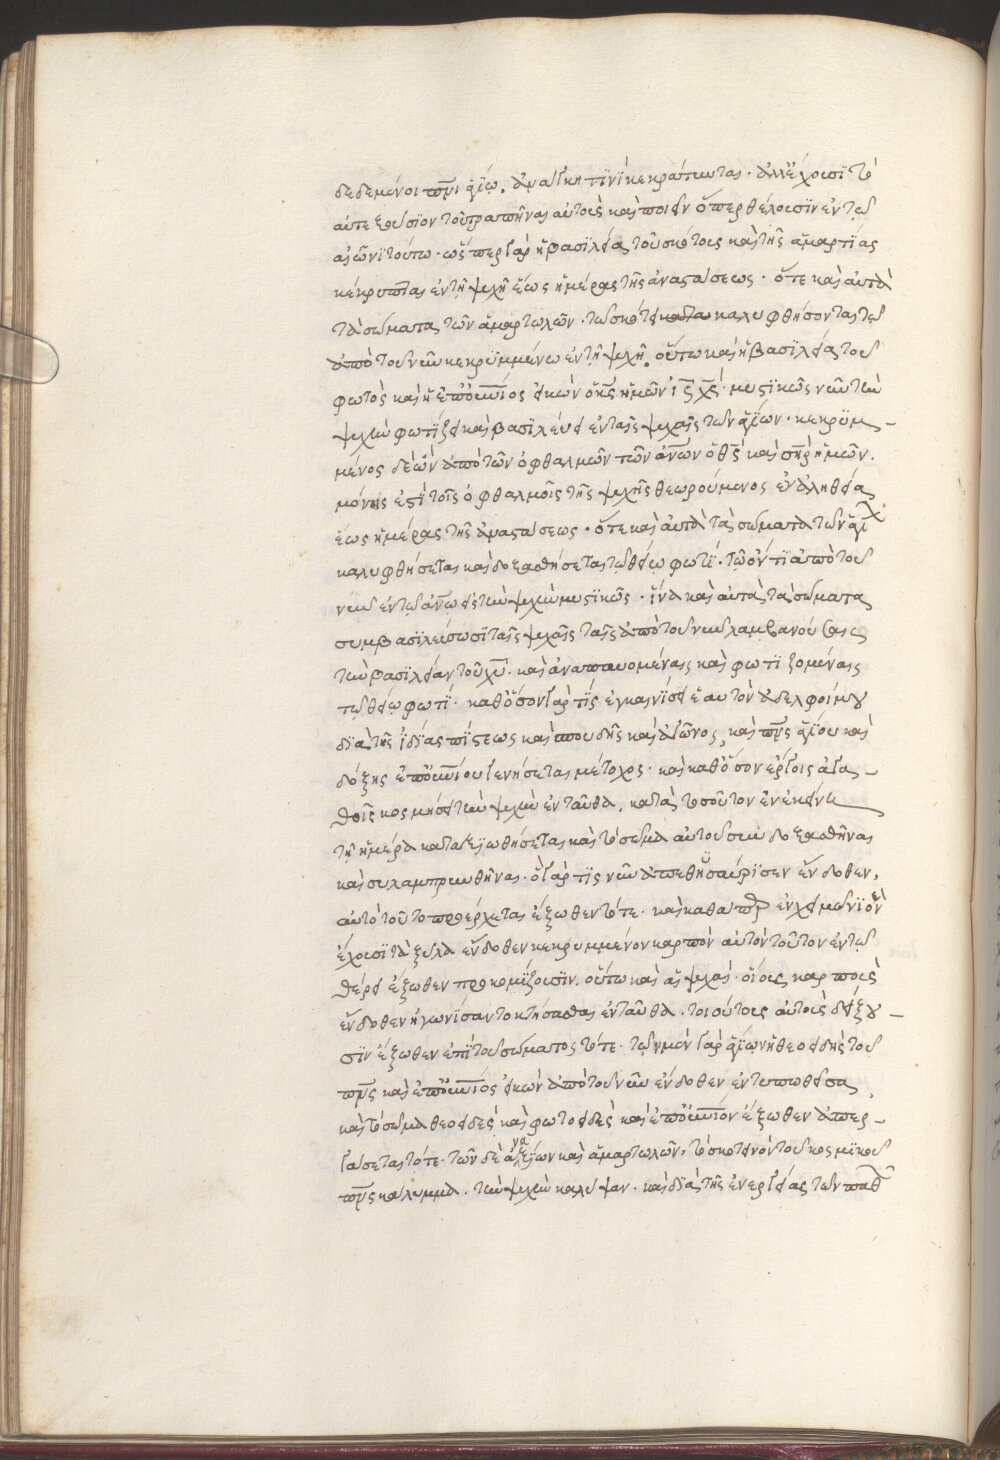 δεδεμένοι πνι ἁγίω. ἀναγκη τϊνὶ κεκράτηνται. ἀλλ' ἔχουσϊ τὸ
αὐτεξούσϊον τοῦ τραπῆναι αὐτοὺς καὶ ποιεῖν ὅπερ θέλουσϊν ἐν τῶ
αἰῶνϊ τούτω. ὥσπερ γὰρ ἡ βασϊλεία τοῦ σκότους καὶ τῆς ἁμαρτίας
κέκρυπται ἐν τῆ ψυχῆ ἕως ἡμέρας τῆς ἀναστάσεως. ὅτε καὶ αὐτὰ
τὰ σώματα τῶν ἁμαρτωλῶν. τῶ σκότει κατακαλυφθήσονται τῶ
ἀπὸ τοῦ νῦν κεκρϋμμένω ἐν τῆ ψυχῆ. οὕτω καὶ ἡ βασϊλεία τοῦ
φωτὸς καὶ ἡ ἐπουνιος εἰκὼν ὁ κς ἡμῶν ις χς. μυστϊκῶς νῦν τὴν
ψυχὴν φωτίζει καὶ βασϊλεύει ἐν ταῖς ψυχαῖς τῶν ἁγίων. κεκρϋμ-
μένος δὲ ὢν ἀπὸ τῶν ὀφθαλμῶν τῶν ανων ὁ θς καὶ σηρ ἡμῶν.
μόνοις ἐπὶ τοῖς ὀφθαλμοῖς τῆς ψυχῆς θεωρούμενος ἐν ἀληθεία
ἕως ἡμέρας τῆς ἀναστάσεως. ὅτε καὶ αὐτὰ τὰ σώματα τῶν ἁγί
καλυφθήσεται καὶ δοξασθήσεται τῶ θείω φωτί. τῶ ὄντϊ ἀπὸ τοῦ
νῦν ἐν τῶ ανω εἰς τὴν ψυχὴν μυστϊκῶς. ἵνα καὶ αὐτὰ τὰ σώματα
συμβασϊλεύσωσϊ ταῖς ψυχαῖς ταῖς ἀπὸ τοῦ νῦν λαμβανούσαις
τὴν βασϊλείαν τοῦ χυ. καὶ ἀναπαυομέναις καὶ φωτϊζομέναις
τῶ θείω φωτί. καθ' ὅσον γάρ τϊς ἐγκαινίσει ἑαυτὸν ἀδελφοί μου
δϊὰ τῆς ἰδίας πίστεως καὶ σπουδῆς καὶ ἀγῶνος, καὶ πνς ἁγίου καὶ
δόξης ἐπουνίου γενήσεται μέτοχος. καὶ καθ' ὅσον ἔργοις ἀγα-
θοῖς κοσμήσει τὴν ψυχὴν ἐνταῦθα, κατὰ τοσοῦτον ἐν ἐκείνη
τῆ ἡμέρα καταξϊωθήσεται καὶ τὸ σῶμα αὐτοῦ συνδοξασθῆναι
καὶ συλαμπρυνθῆναι. ὃ γάρ τϊς νῦν ἀπεθησαύρϊσεν ἔνδοθεν,
αὐτὸ τοῦτο προέρχεται ἔξωθεν τότε. καὶ καθάπερ ἐν χειμῶνϊ ὃν
ἔχουσϊ τὰ ξύλα ἔνδοθεν κεκρυμμένον καρπὸν αὐτὸν τοῦτον ἐν τῶ
θέρει ἔξωθεν προκομίζουσϊν. οὕτω καὶ αἱ ψυχαί. οἵους καρποὺς
ἔνδοθεν ἠγωνίσαντο κτήσασθαι ἐνταῦθα. τοιούτους αὐτοὺς δείξου-
σϊν ἔξωθεν ἐπὶ τοῦ σώματος τότε. τῶν μὲν γὰρ ἁγίων ἡ θεοειδὴς τοῦ
πνς καὶ ἐπουνιος εἰκὼν ἀπὸ τοῦ νῦν ἔνδοθεν ἐντυπωθεῖσα,
καὶ τὸ σῶμα θεοειδὲς καὶ φωτοειδὲς καὶ ἐπουνιον ἔξωθεν ἀπερ-
γάσεται τότε. τῶν δὲ ἀναξίων καὶ ἁμαρτωλῶν, τὸ σκοτεινὸν τοῦ κοσμϊκοῦ
πνς κάλυμμα. τὴν ψυχὴν καλύψαν. καὶ δϊὰ τῆς ἐνεργείας τῶν παθ